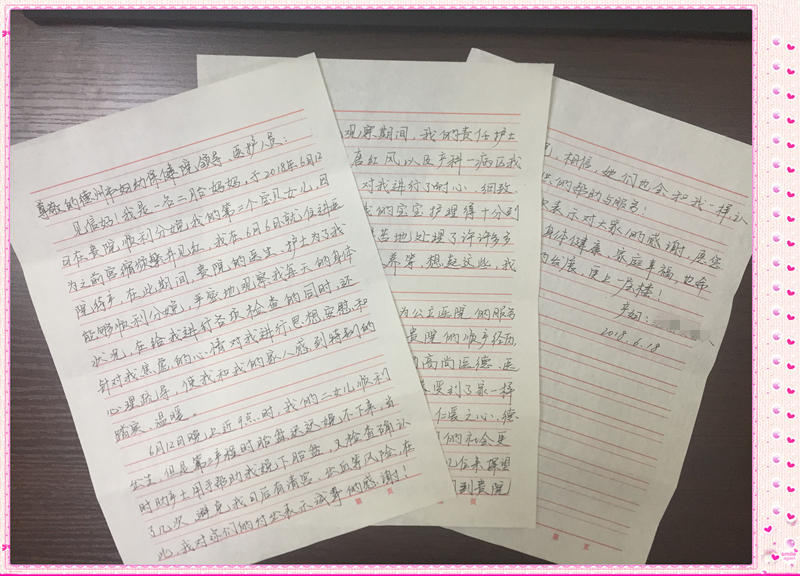 尊敬的德州市妇幼保健院领导、医护人员：
见信好！我是一名二胎妈妈，于2018年6月12
日在贵院顺利分娩我的第二个宝贝女儿，因
为之前宫缩频繁并见红，我在6月6日就住进医
院待产，在此期间，贵院的医生、护士为了我
能够顺利分娩，手密地观察我每天的身体
状况，在给我进行各项检查的同时，还
针对我焦虑的心情对我进行思想安慰和
心理疏导，使我和我的家人感到特别的
踏实、温暖。
6月12日晚上近9点时，我的二女儿顺利
出生，但是第三产程时胎盘迟迟娩不下来，当
时助产士用手帮助我娩下胎盘，又检查确认
了几次，避免我日后有清宫、出血等风险，在
此，我对你们的付出表示诚挚的感谢！
第 页
观察期间，我的责任护士
唐红风，以及产科一病区我
对我进行了耐心、细致
我的宝宝护理得十分到
苦地处理了许许多多
养等，想起这些，我
为公立医院的服务
贵院的顺产经历，
的高尚医德、医
受到了家一样
仁爱之心、德
们的社会是
几位来探望
到贵院
页
，相信，她们也会和我一样，认
的帮助与服务！
表示对大家的感谢，愿您
身体健康，家庭幸福，也希
的发展，更上一层楼！
产妇：
2018.6.18
第 页